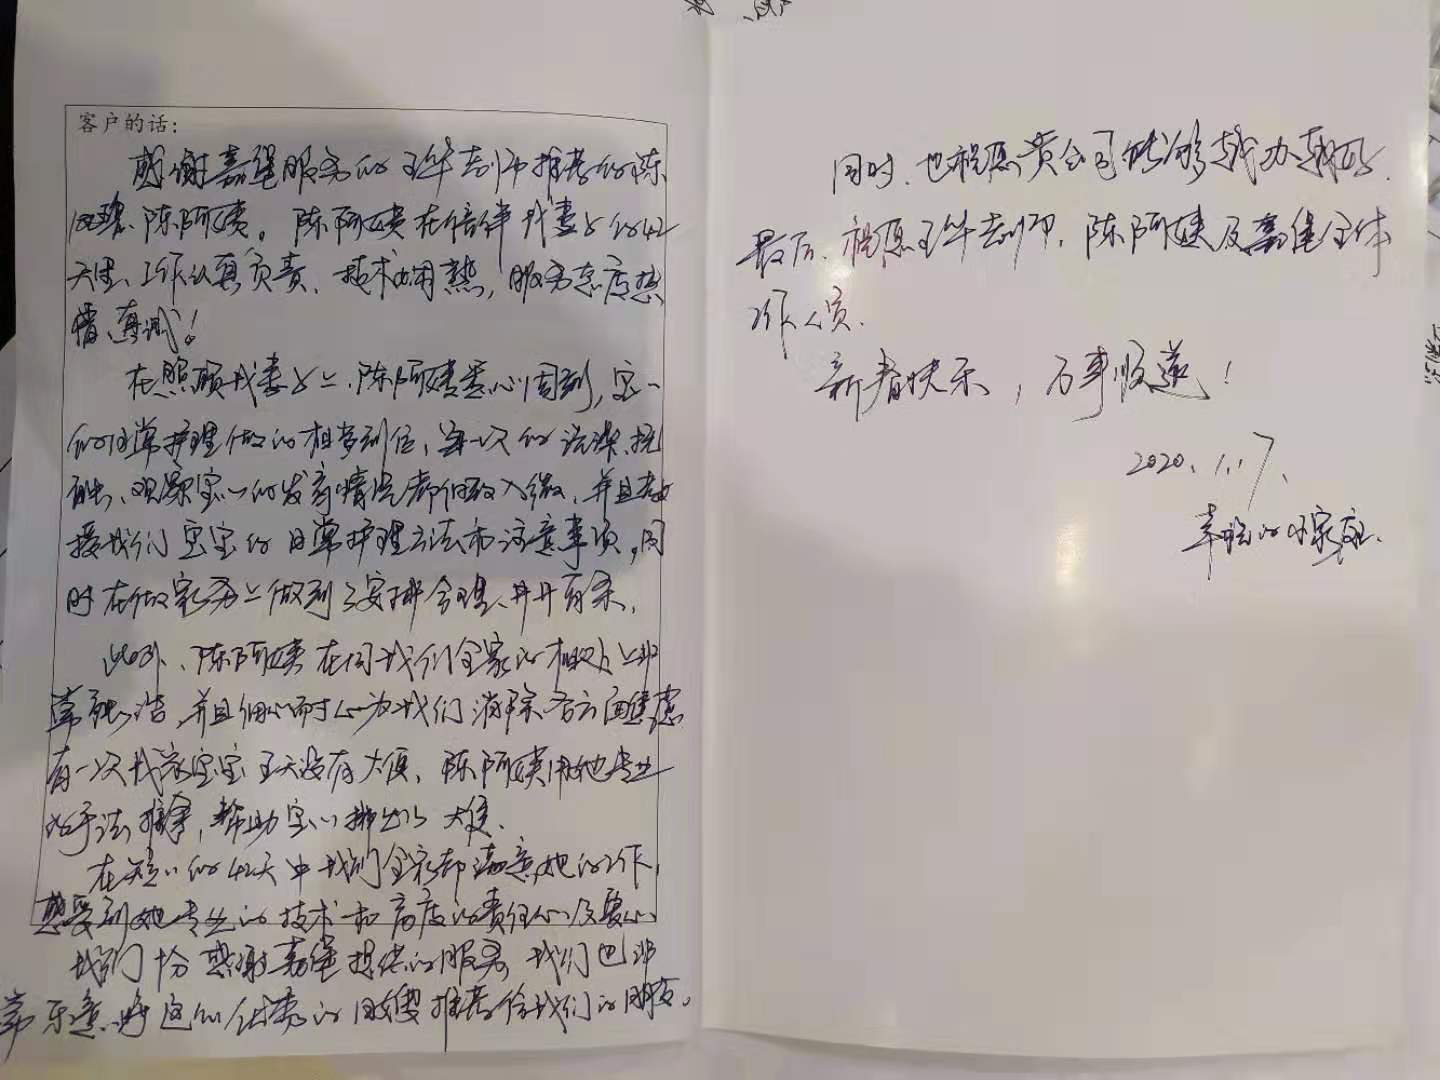 客户的话:
感谢嘉堡服务的王华老师推荐的陈
陈阿姨。陈阿姨在陪伴我妻子的42
天里、工作认真负责、技术娴熟,服务态度热
情真诚!
在照顾我妻子上、陈阿姨悉心周到,宝一
的日常护理做的相当到位,每一次的洗澡、抚
触、观察宝〃的发育情况都细致入微、并且教
授我们宝宝的日常护理方法和注意事项,同
时在做家务上做到了安排合理、井井有条,
此外、陈阿姨在同我们全家的相处上非
常融洽,并且细心耐心为我们消除各方面焦虑
有一次我家宝宝五天没有大便、陈阿姨用她专业
的手法推拿,帮助宝〃排出了大便、
在短〃的42天中我们全家都满意她的工作,
感受到她专业的技术和高度的责任心及爱心
我们十分感谢嘉堡提供的服务 我们也非
常乐意将这么优秀的月嫂推荐给我们的朋友。
同时、也祝愿贵公司能够越办越好、
最后、祝愿王华老师、陈阿姨及嘉堡全体
工作人员、
新春快乐,万事顺遂!
2020.1.17.
幸福的小家庭、